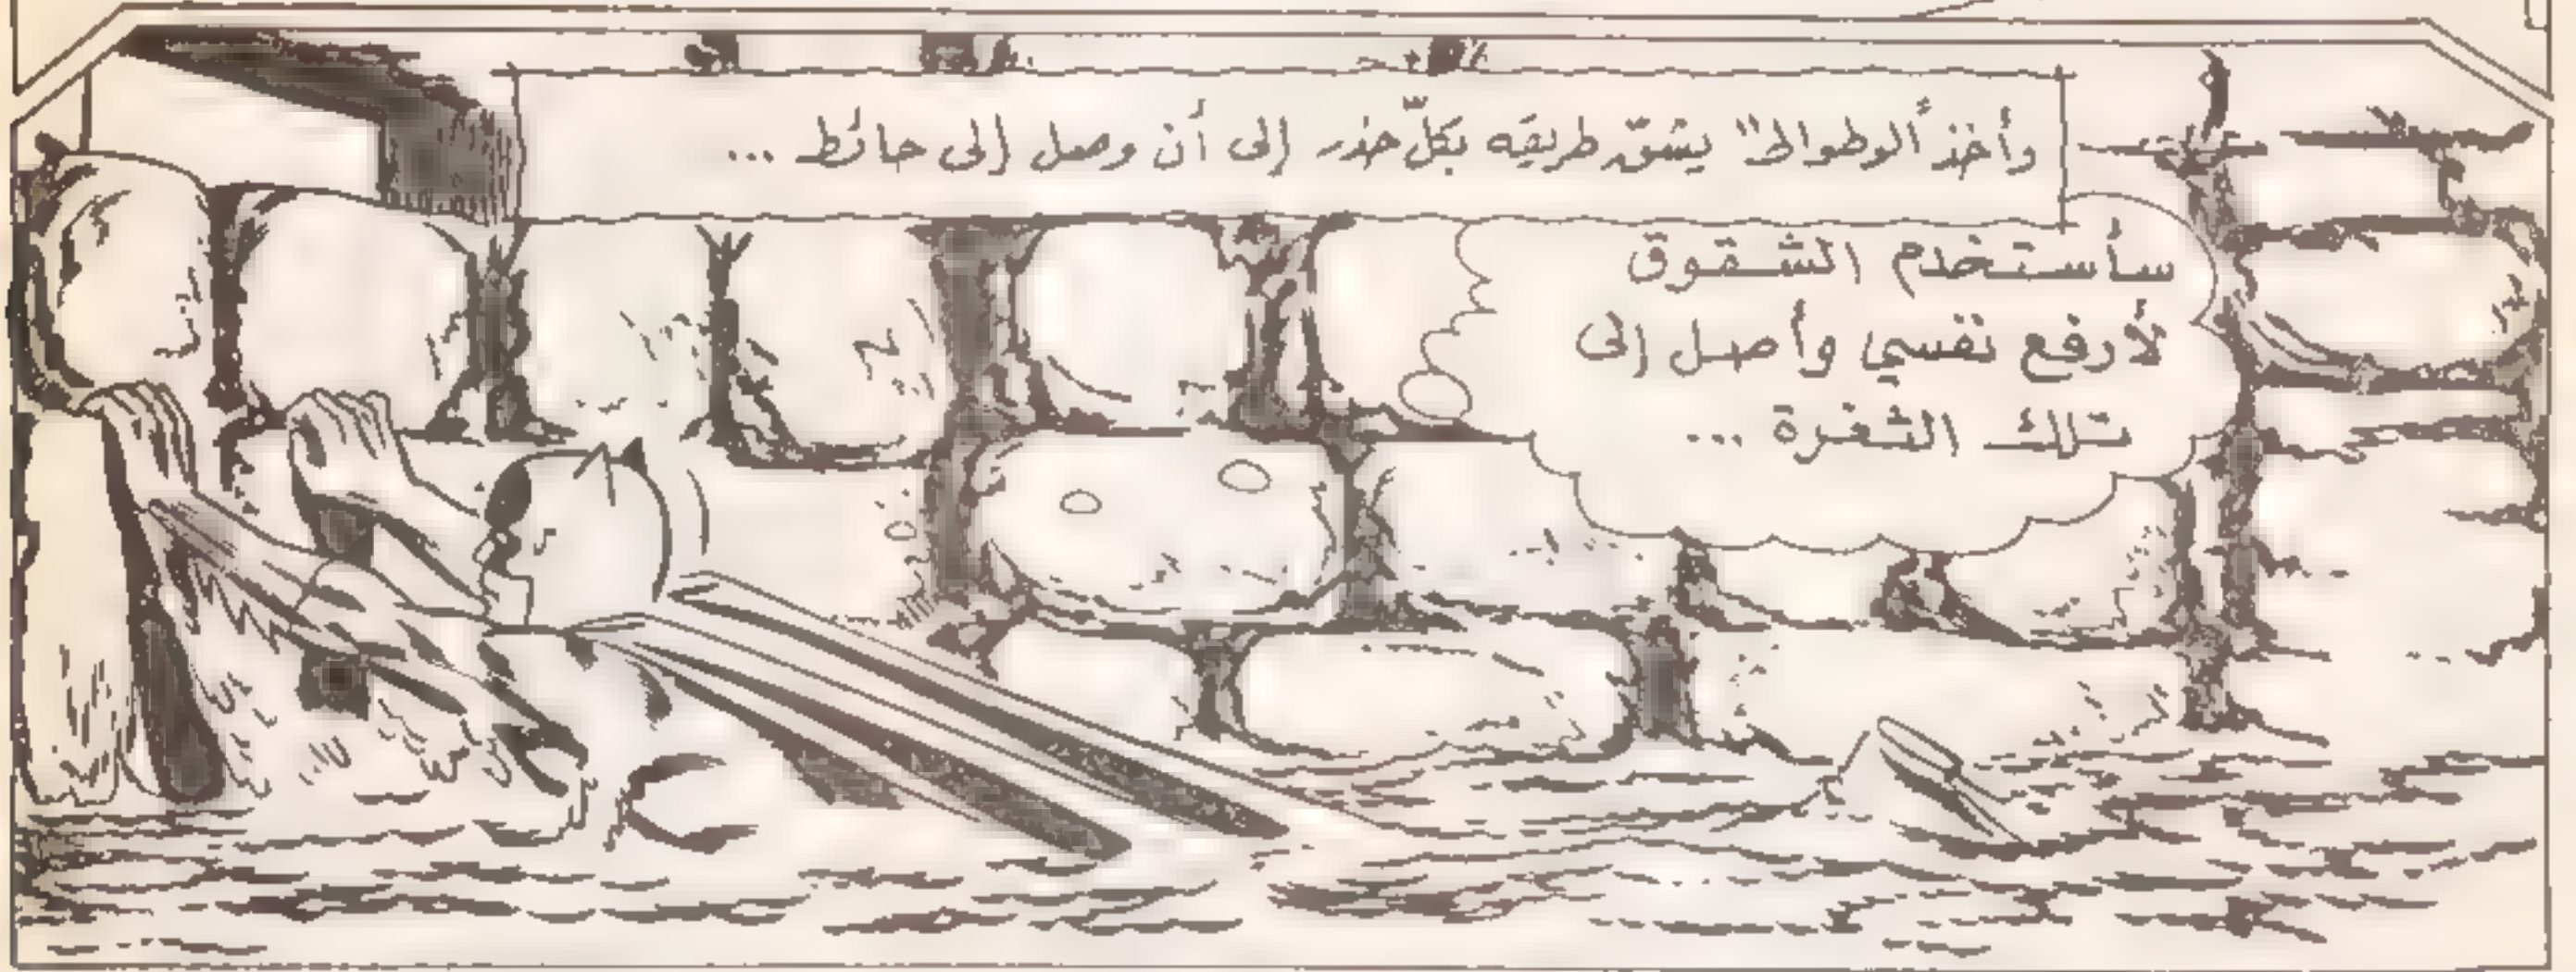 وأخذ "الوطواط" يشقّ طريقه بكلّ حذر إلى أن وصل إلى حائط ...
سأستخدم الشقوق
لأرفع نفسي وأصل إلى
تلك الثغرة ...